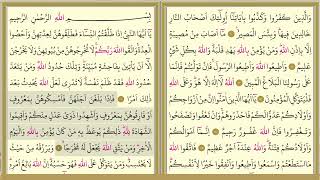 وَالَّذِينَ كَفَرُوا وَكَذَّبُوا بِآيَاتِنَا أُولَٰئِكَ أَصْحَابُ النَّارِ
خَالِدِينَ فِيهَا وَبِئْسَ الْمَصِيرُ مَا أَصَابَ مِنْ مُصِيبَةٍ
إِلَّا بِإِذْنِ اللَّهِ وَمَنْ يُؤْمِنْ بِاللَّهِ يَهْدِ قَلْبَهُ وَاللَّهُ بِكُلِّ شَيْءٍ
عَلِيمٌ وَأَطِيعُوا اللَّهَ وَأَطِيعُوا الرَّسُولَ فَإِنْ تَوَلَّيْتُمْ فَإِنَّمَا
عَلَىٰ رَسُولِنَا الْبَلَاغُ الْمُبِينُ اللَّهُ لَا إِلَٰهَ إِلَّا هُوَ وَعَلَى اللَّهِ
فَلْيَتَوَكَّلِ الْمُؤْمِنُونَ يَا أَيُّهَا الَّذِينَ آمَنُوا إِنَّ مِنْ أَزْوَاجِكُمْ
وَأَوْلَادِكُمْ عَدُوًّا لَكُمْ فَاحْذَرُوهُمْ وَإِنْ تَعْفُوا وَتَصْفَحُوا
وَتَغْفِرُوا فَإِنَّ اللَّهَ غَفُورٌ رَحِيمٌ إِنَّمَا أَمْوَالُكُمْ
وَأَوْلَادُكُمْ فِتْنَةٌ وَاللَّهُ عِنْدَهُ أَجْرٌ عَظِيمٌ فَاتَّقُوا اللَّهَ
مَا اسْتَطَعْتُمْ وَاسْمَعُوا وَأَطِيعُوا وَأَنْفِقُوا خَيْرًا لِأَنْفُسِكُمْ
بِسْمِ اللَّهِ الرَّحْمَٰنِ الرَّحِيمِ
يَا أَيُّهَا النَّبِيُّ إِذَا طَلَّقْتُمُ النِّسَاءَ فَطَلِّقُوهُنَّ لِعِدَّتِهِنَّ وَأَحْصُوا
الْعِدَّةَ وَاتَّقُوا اللَّهَ رَبَّكُمْ لَا تُخْرِجُوهُنَّ مِنْ بُيُوتِهِنَّ وَلَا
يَخْرُجْنَ إِلَّا أَنْ يَأْتِينَ بِفَاحِشَةٍ مُبَيِّنَةٍ وَتِلْكَ حُدُودُ اللَّهِ وَمَنْ يَتَعَدَّ
حُدُودَ اللَّهِ فَقَدْ ظَلَمَ نَفْسَهُ لَا تَدْرِي لَعَلَّ اللَّهَ يُحْدِثُ بَعْدَ
ذَٰلِكَ أَمْرًا فَإِذَا بَلَغْنَ أَجَلَهُنَّ فَأَمْسِكُوهُنَّ بِمَعْرُوفٍ
أَوْ فَارِقُوهُنَّ بِمَعْرُوفٍ وَأَشْهِدُوا ذَوَيْ عَدْلٍ مِنْكُمْ وَأَقِيمُوا
الشَّهَادَةَ لِلَّهِ ذَٰلِكُمْ يُوعَظُ بِهِ مَنْ كَانَ يُؤْمِنُ بِاللَّهِ وَالْيَوْمِ
الْآخِرِ وَمَنْ يَتَّقِ اللَّهَ يَجْعَلْ لَهُ مَخْرَجًا وَيَرْزُقْهُ مِنْ حَيْثُ
لَا يَحْتَسِبُ وَمَنْ يَتَوَكَّلْ عَلَى اللَّهِ فَهُوَ حَسْبُهُ إِنَّ اللَّهَ